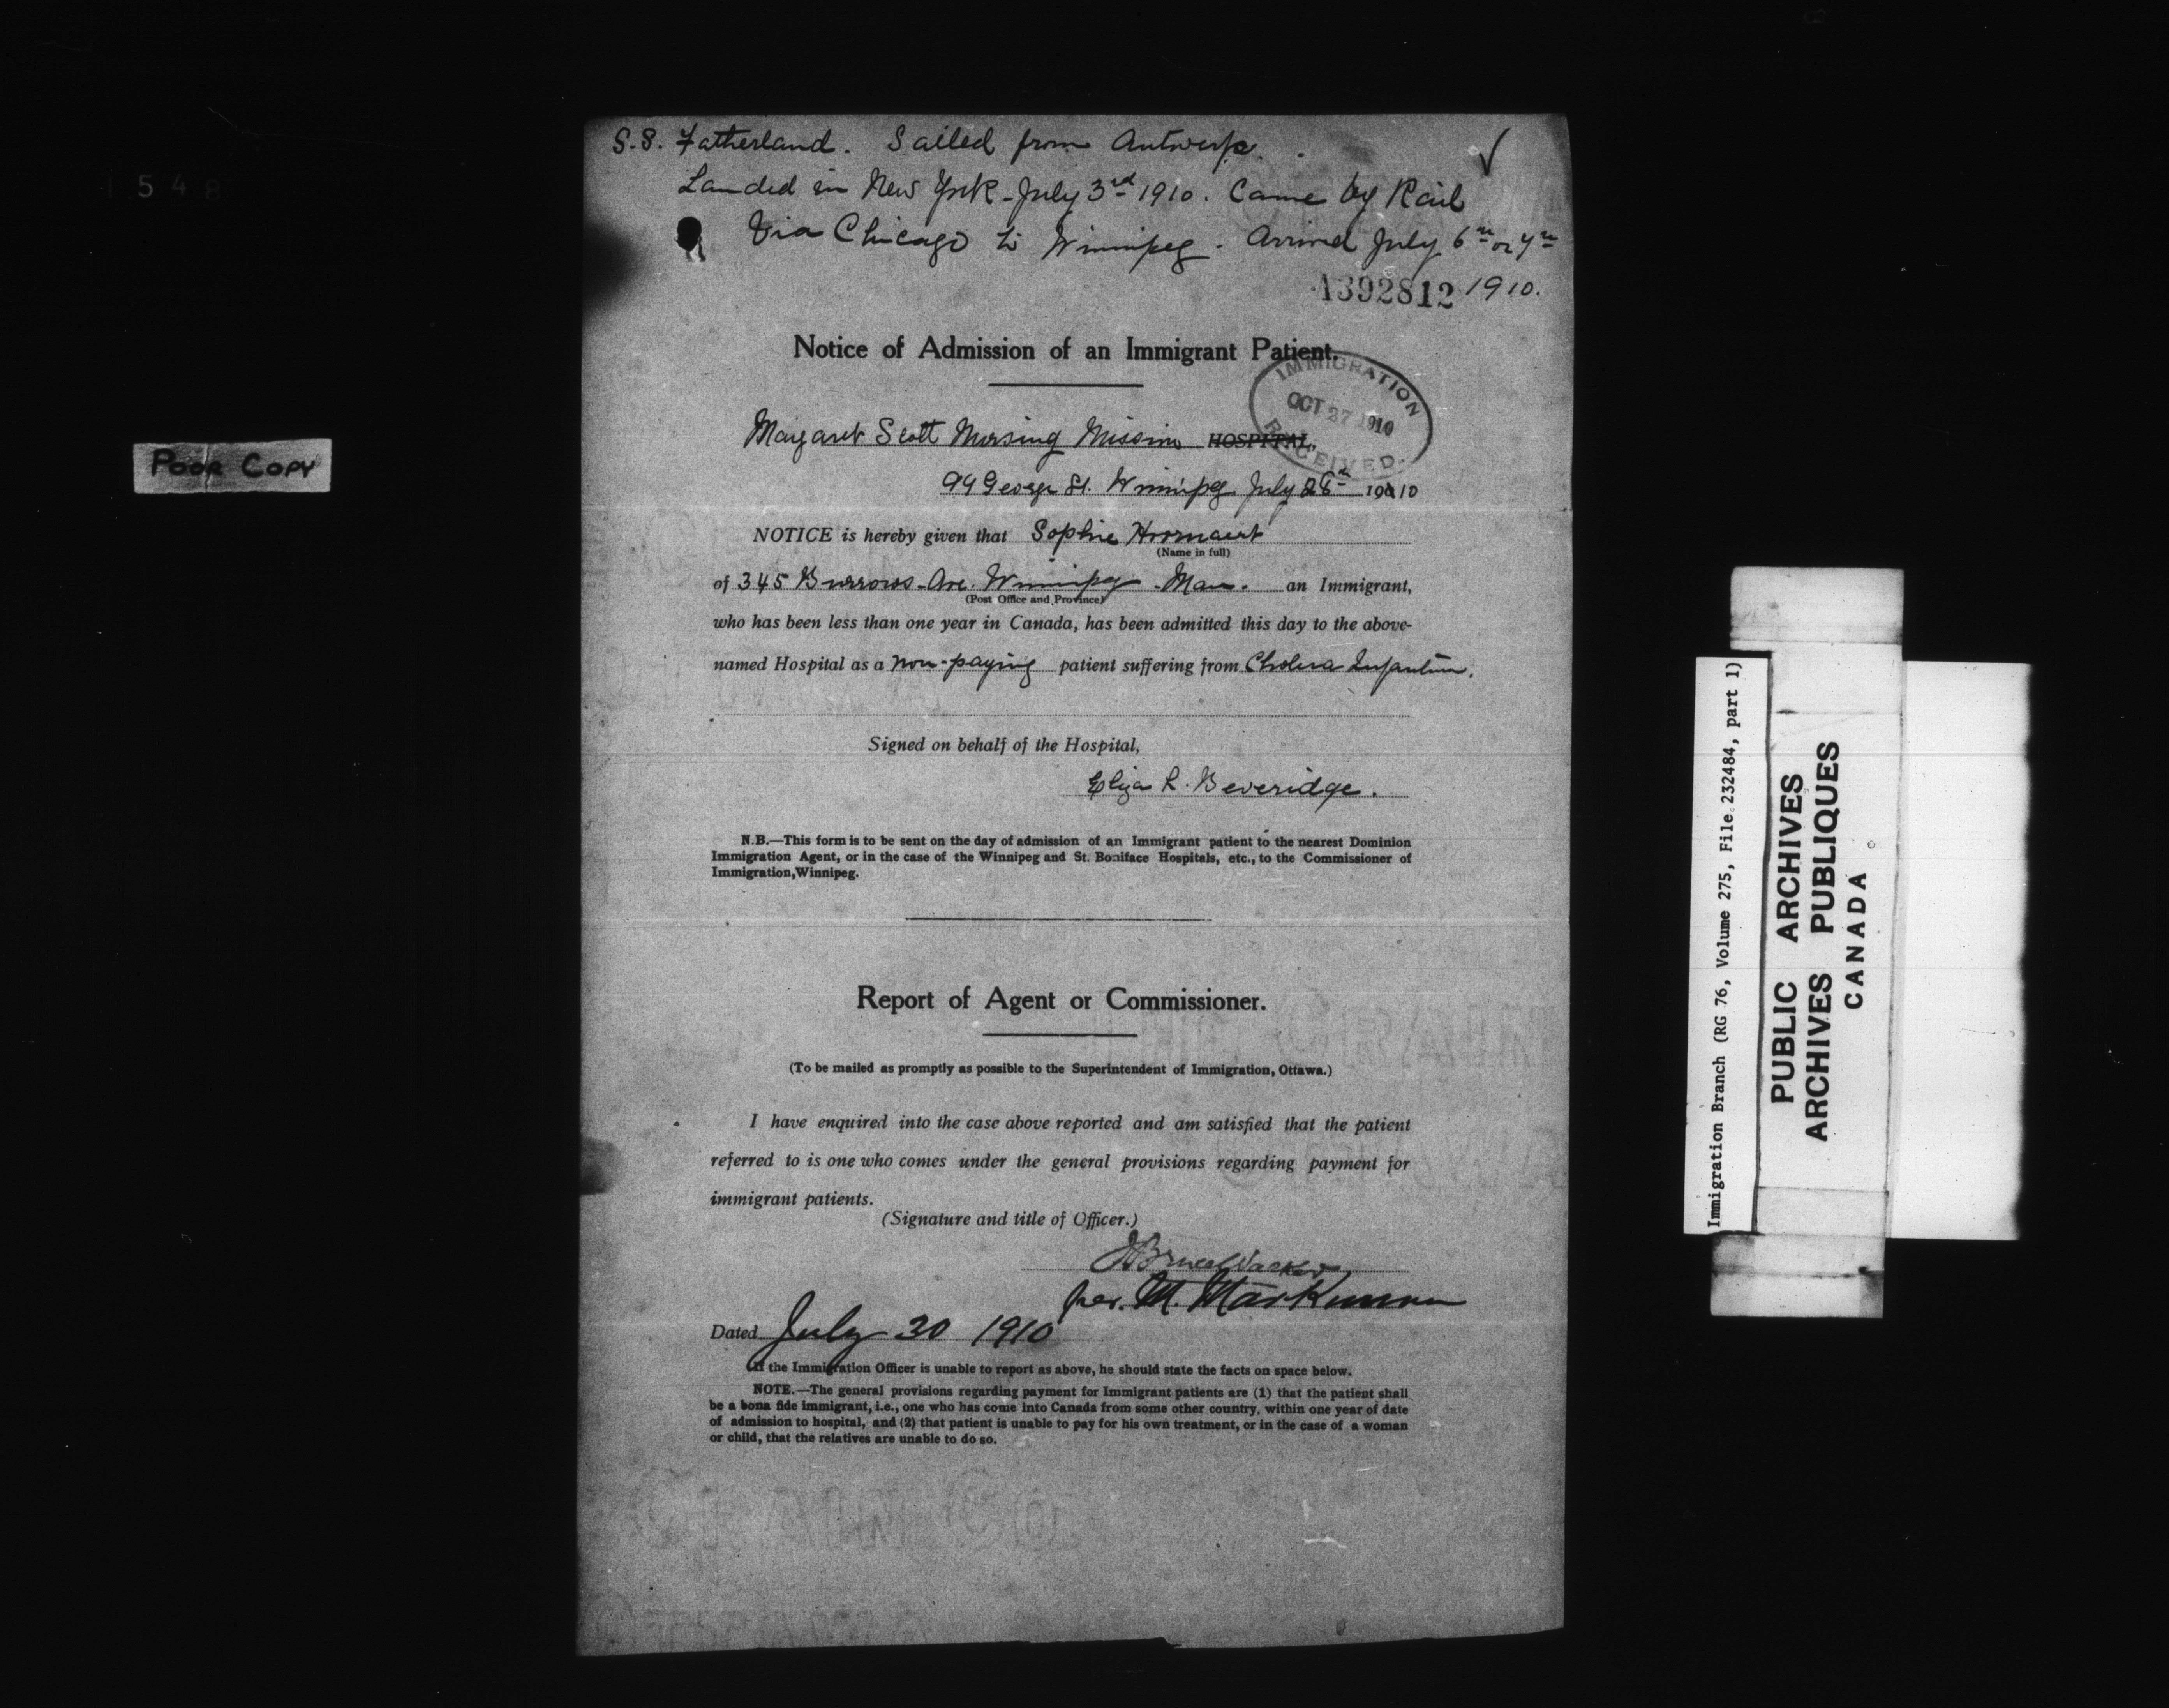 S.S. Fatherland. Sailed from Antwerp.
Landed in New York - July 3rd 1910. Came by Rail
Via Chicago to Winnipeg. Arrived July 6th or 7th
1910.
A392812
Notice of Admission of an Immigrant Patient.
IMMIGRATION
OCT 27 1910
RECEIVED
Margaret Scott Nursing Mission HOSPITAL,
99 George St. Winnipeg July 28th 1910
NOTICE is hereby given that Sophie Hoornaert
(Name in full)
of 345 Burrows-Ave. Winnipeg - Man. an Immigrant,
(Post Office and Province)
who has been less than one year in Canada, has been admitted this day to the above-
named Hospital as a non-paying patient suffering from Cholera Infantum.
Signed on behalf of the Hospital,
Eliza L. Beveridge.
N.B.—This form is to be sent on the day of admission of an Immigrant patient to the nearest Dominion
Immigration Agent, or in the case of the Winnipeg and St. Boniface Hospitals, etc., to the Commissioner of
Immigration, Winnipeg.
Report of Agent or Commissioner.
(To be mailed as promptly as possible to the Superintendent of Immigration, Ottawa.)
I have enquired into the case above reported and am satisfied that the patient
referred to is one who comes under the general provisions regarding payment for
immigrant patients.
(Signature and title of Officer.)
J Bruce Walker
per. M. MacKinnon
Dated July 30 1910
If the Immigration Officer is unable to report as above, he should state the facts on space below.
NOTE.—The general provisions regarding payment for Immigrant patients are (1) that the patient shall
be a bona fide immigrant, i.e., one who has come into Canada from some other country, within one year of date
of admission to hospital, and (2) that patient is unable to pay for his own treatment, or in the case of a woman
or child, that the relatives are unable to do so.
548
POOR COPY
Immigration Branch (RG 76, Volume 275, File 232484, part 1)
PUBLIC ARCHIVES
ARCHIVES PUBLIQUES
CANADA